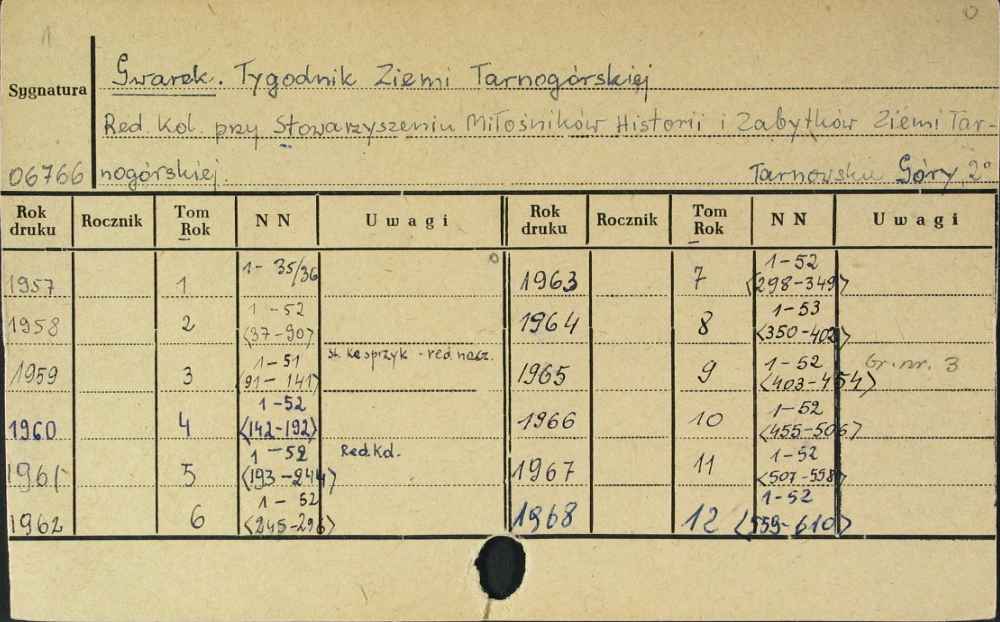 Sygnatura
06766
Gwarek. Tygodnik Ziemi Tarnogórskiej
Red. Kol. przy Stowarzyszeniu Miłośników Historii i Zabytków Ziemi Tar-
nogórskiej. Tarnowskie Góry, 2°
Rok druku Rocznik Tom Rok NN Uwagi Rok druku Rocznik Tom Rok NN Uwagi
1957 1 1-35/36
1958 2 1-52 <37-90>
1959 3 1-51 <91-141> St. Kasprzyk - red. nacz.
1960 4 1-52 <142-192>
1961 5 1-52 <193-244> Red. Kol.
1962 6 1-52 <245-296>
1963 7 1-52 <298-349>
1964 8 1-53 <350-402>
1965 9 1-52 <403-454> br. nr. 3
1966 10 1-52 <455-506>
1967 11 1-52 <507-558>
1968 12 1-52 <559-610>